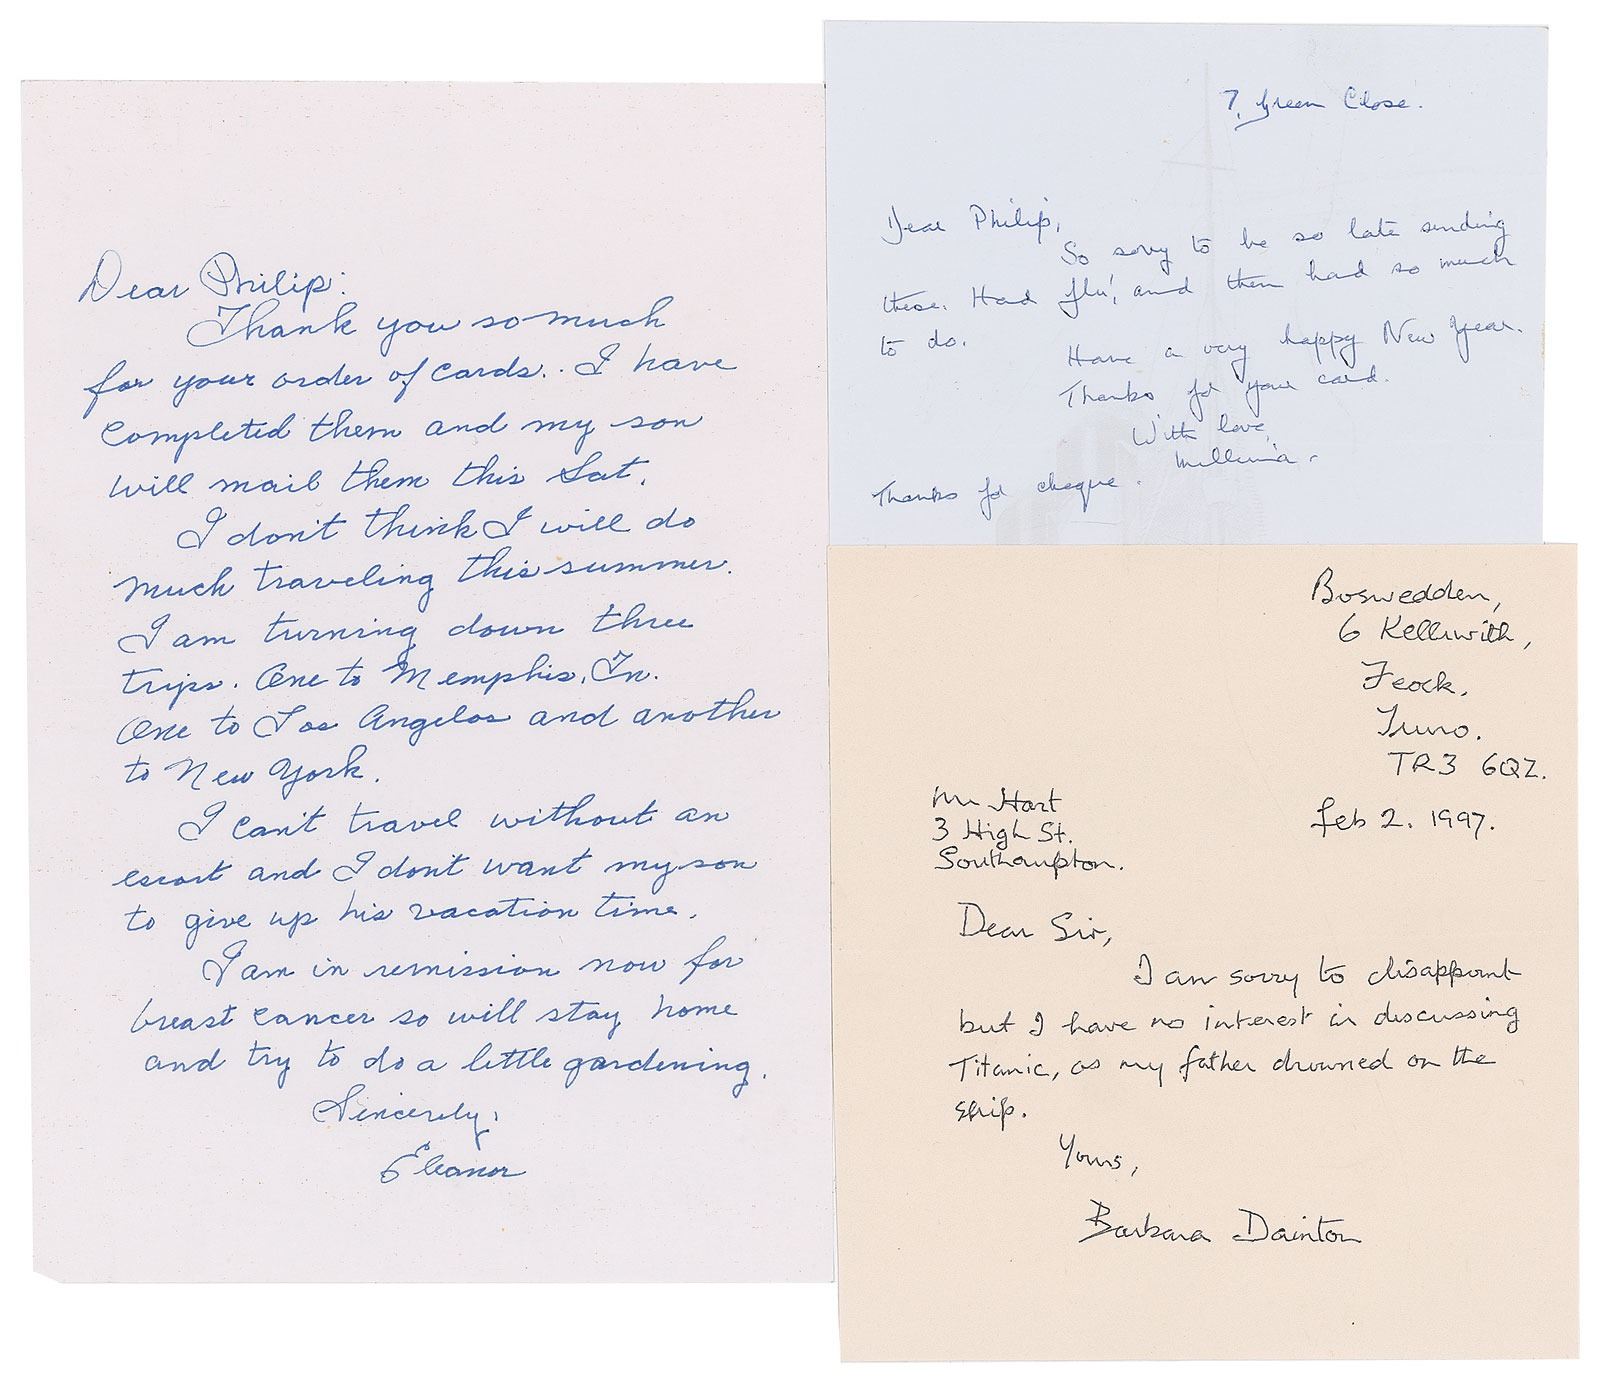 Dear Philip:
Thank you so much
for your order of cards.. I have
completed them and my son
will mail them this Sat.
I don't think I will do
much traveling this summer.
I am turning down three
trips. One to Memphis, Tn.
One to Los Angelos and another
to New York.
I can't travel without an
escort and I don't want my son
to give up his vacation time.
I am in remission now for
breast cancer so will stay home
and try to do a little gardening.
Sincerely,
Eleanor
7, Green Close.
Dear Philip,
So sorry to be so late sending
these. Had 'flu', and then had so much
to do.
Have a very happy New Year.
Thanks for your card.
With love,
Millvina.
Thanks for cheque.
Boswedden,
6 Kelliwith,
Feock,
Truro.
TR3 6QZ.
Feb 2. 1997.
Mr Hart
3 High St.
Southampton.
Dear Sir,
I am sorry to disappoint
but I have no interest in discussing
Titanic, as my father drowned on the
ship.
Yours,
Barbara Dainton